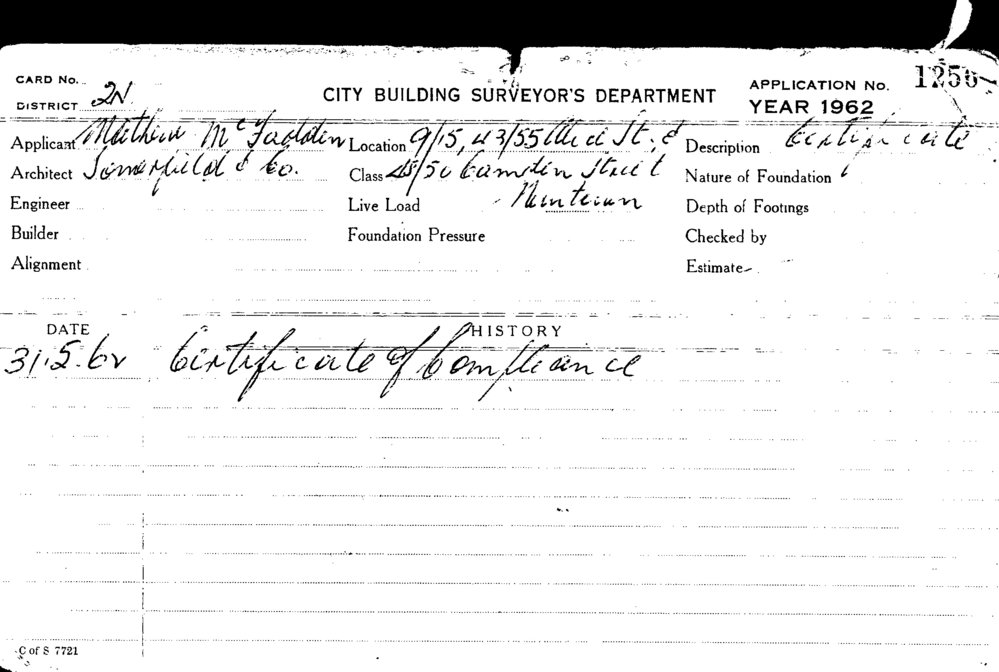 CARD No.
DISTRICT 2N
CITY BUILDING SURVEYOR'S DEPARTMENT
APPLICATION No. 1256
YEAR 1962
Applicant Matthew McFadden Location 9/15, 43/55 Alice St, & Description Certificate
Architect Somerfield & Co. Class 48/50 Camden Street Nature of Foundation
Engineer Live Load Newtown Depth of Footings
Builder Foundation Pressure Checked by
Alignment Estimate
DATE HISTORY
31.5.62 Certificate of Compliance
C of S 7721